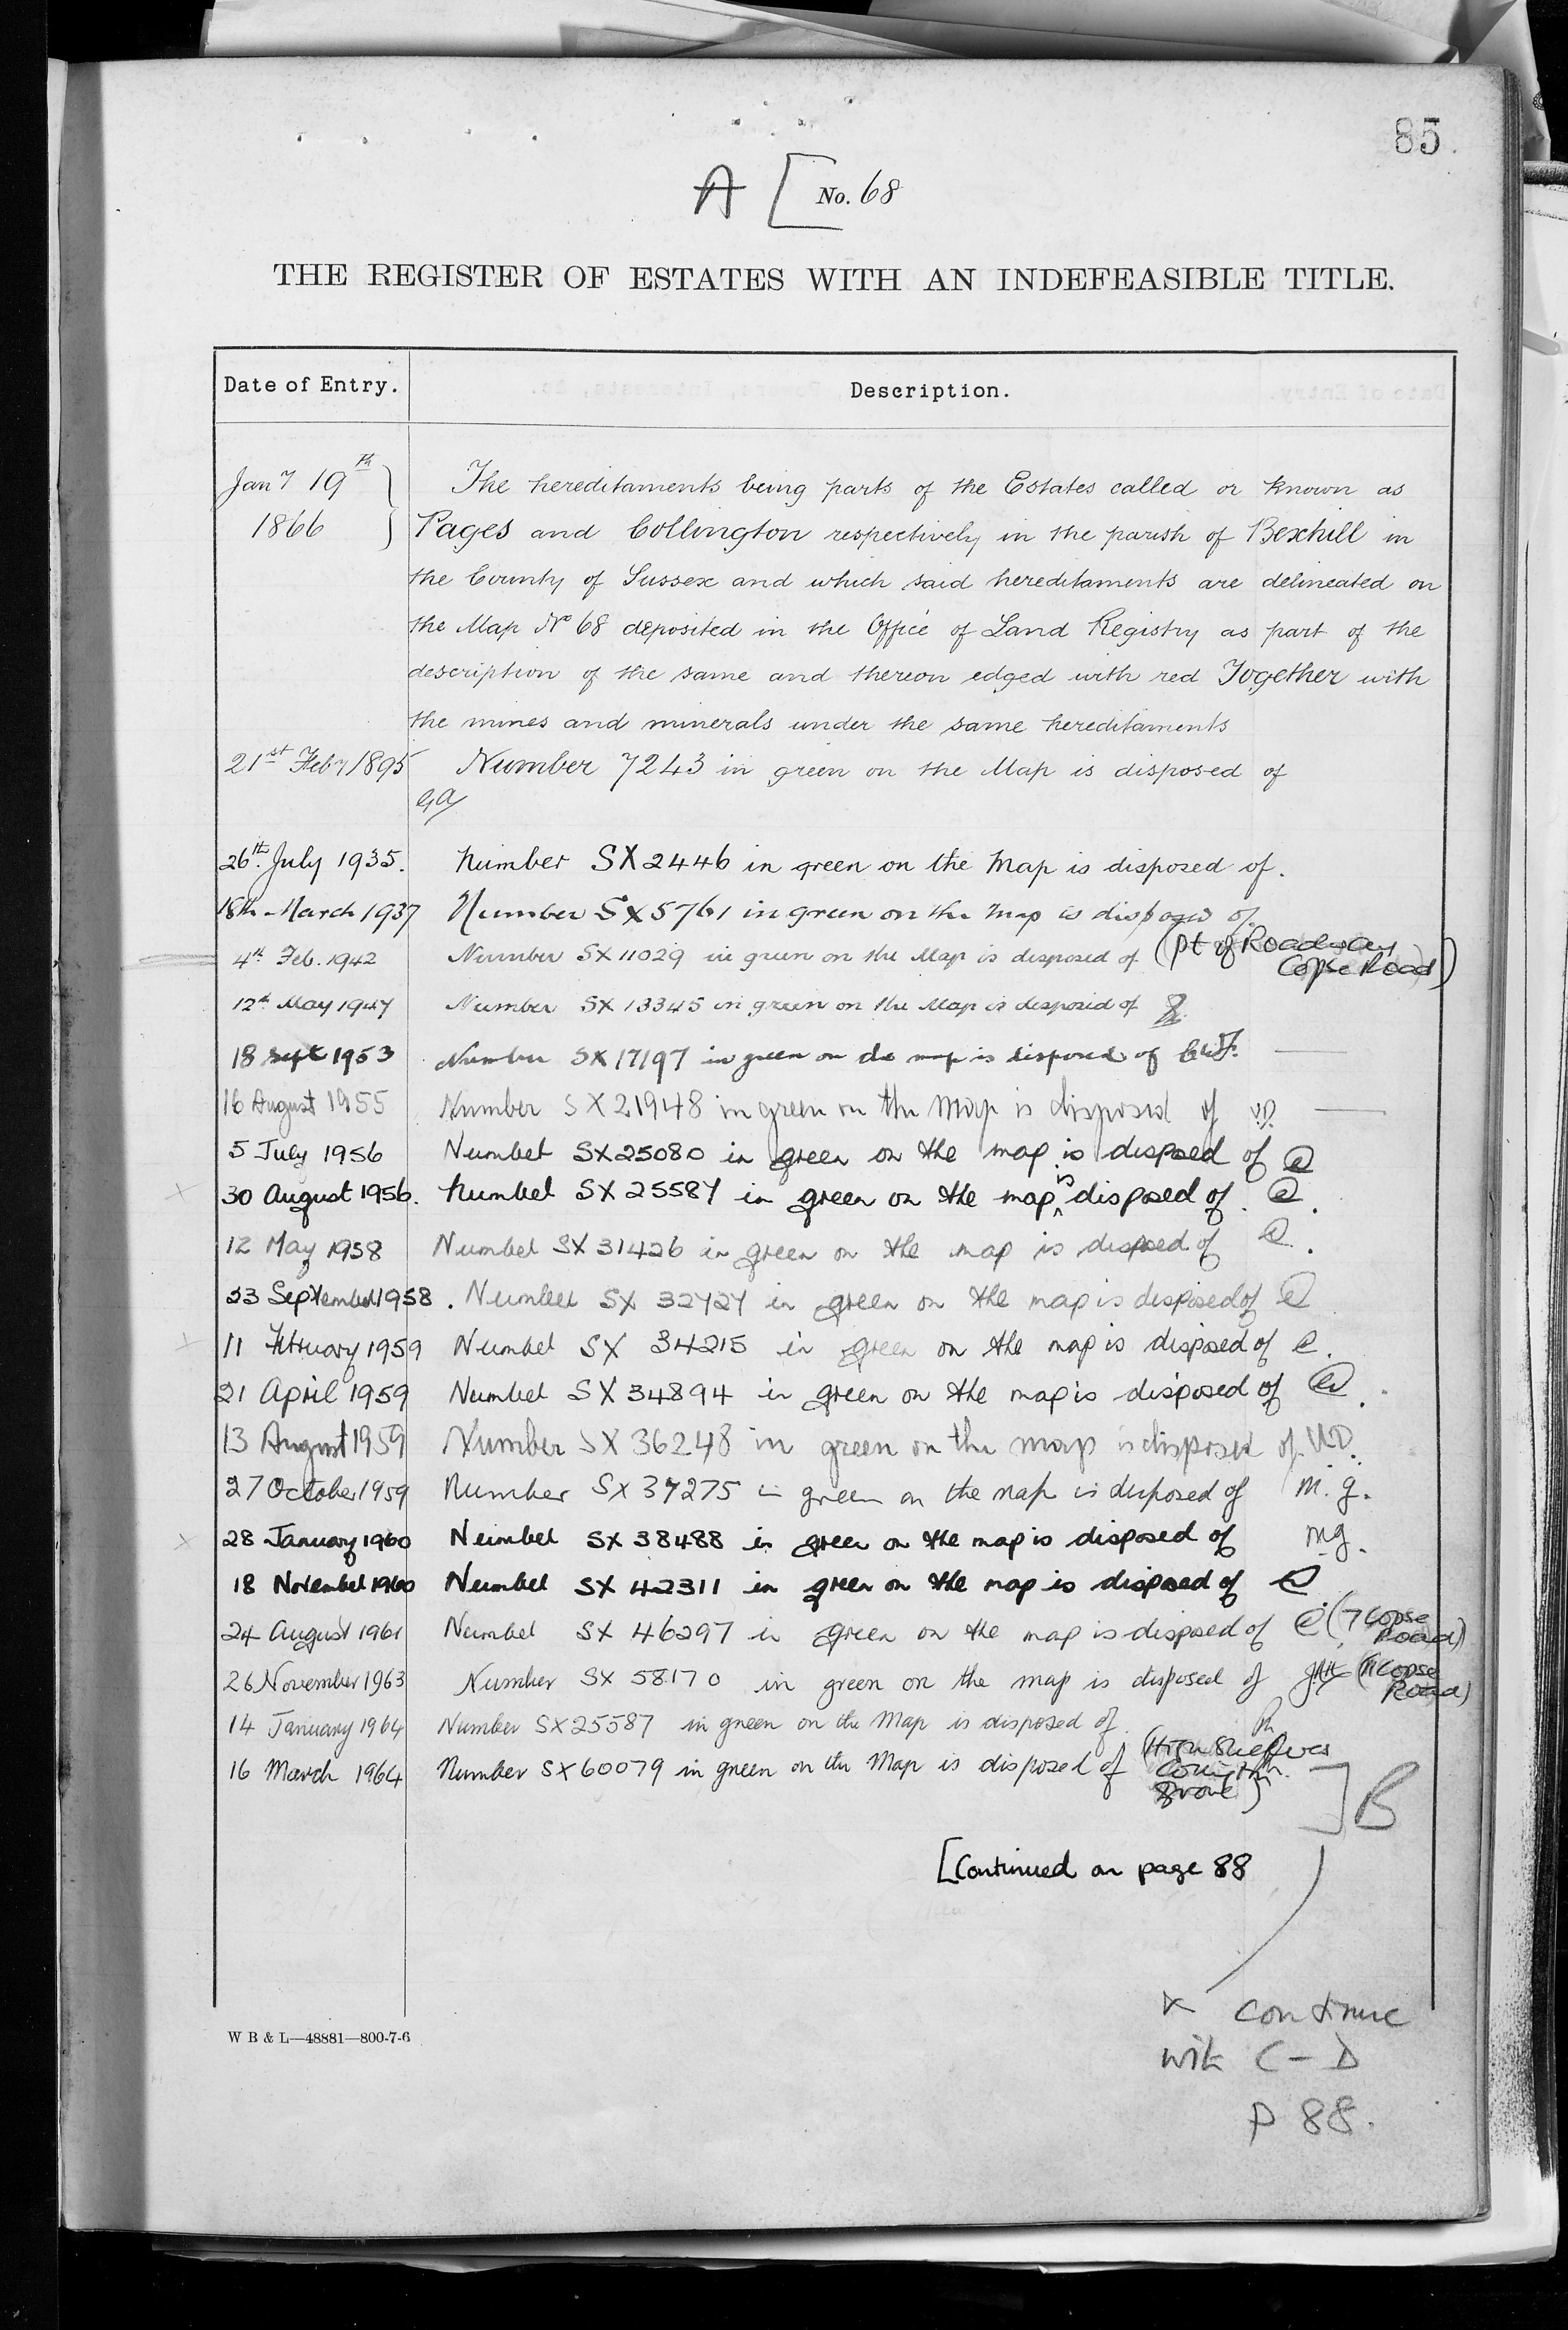 85.
A [ No. 68
THE REGISTER OF ESTATES WITH AN INDEFEASIBLE TITLE.
Date of Entry. Description.
Jany 19th The hereditaments being parts of the Estates called or known as
1866 Pages and Collington respectively in the parish of Bexhill in
the County of Sussex and which said hereditaments are delineated on
the Map No 68 deposited in the Office of Land Registry as part of the
description of the same and thereon edged with red Together with
the mines and minerals under the same hereditaments
21st Feby 1895 Number 7243 in green on the Map is disposed of
26th July 1935. Number SX2446 in green on the Map is disposed of.
18th March 1937 Number SX5761 in green on the Map is disposed of.
4th Feb. 1942 Number SX 11029 in green on the Map is disposed of (pt of Roadway
Copse Road)
12th May 1947 Number SX 13345 in green on the Map is disposed of
18 Sept 1953 Number SX 17197 in green on the map is disposed of
16 August 1955 Number SX 21948 in green on the Map is disposed of V.D.
5 July 1956 Number SX25080 in green on the map is disposed of
30 August 1956. Number SX 25587 in green on the map is disposed of.
12 May 1958 Number SX 31426 in green on the map is disposed of
23 September 1958. Number SX 32727 in green on the map is disposed of
11 February 1959 Number SX 34215 in green on the map is disposed of
21 April 1959 Number SX 34894 in green on the map is disposed of
13 August 1959 Number SX 36248 in green on the map is disposed of V.D.
27 October 1959 Number SX 37275 in green on the map is disposed of m.g.
28 January 1960 Number SX 38488 in green on the map is disposed of mg.
18 November 1960 Number SX 42311 in green on the map is disposed of
24 August 1961 Number SX 46297 in green on the map is disposed of (7 Copse
Road)
26 November 1963 Number SX 58170 in green on the map is disposed of (11 Copse
Road)
14 January 1964 Number SX25587 in green on the Map is disposed of.
16 March 1964 Number SX60079 in green on the Map is disposed of (High
Grove)
] B
[Continued on page 88
x continue
with C - D
p 88.
W B & L—48881—800-7-6